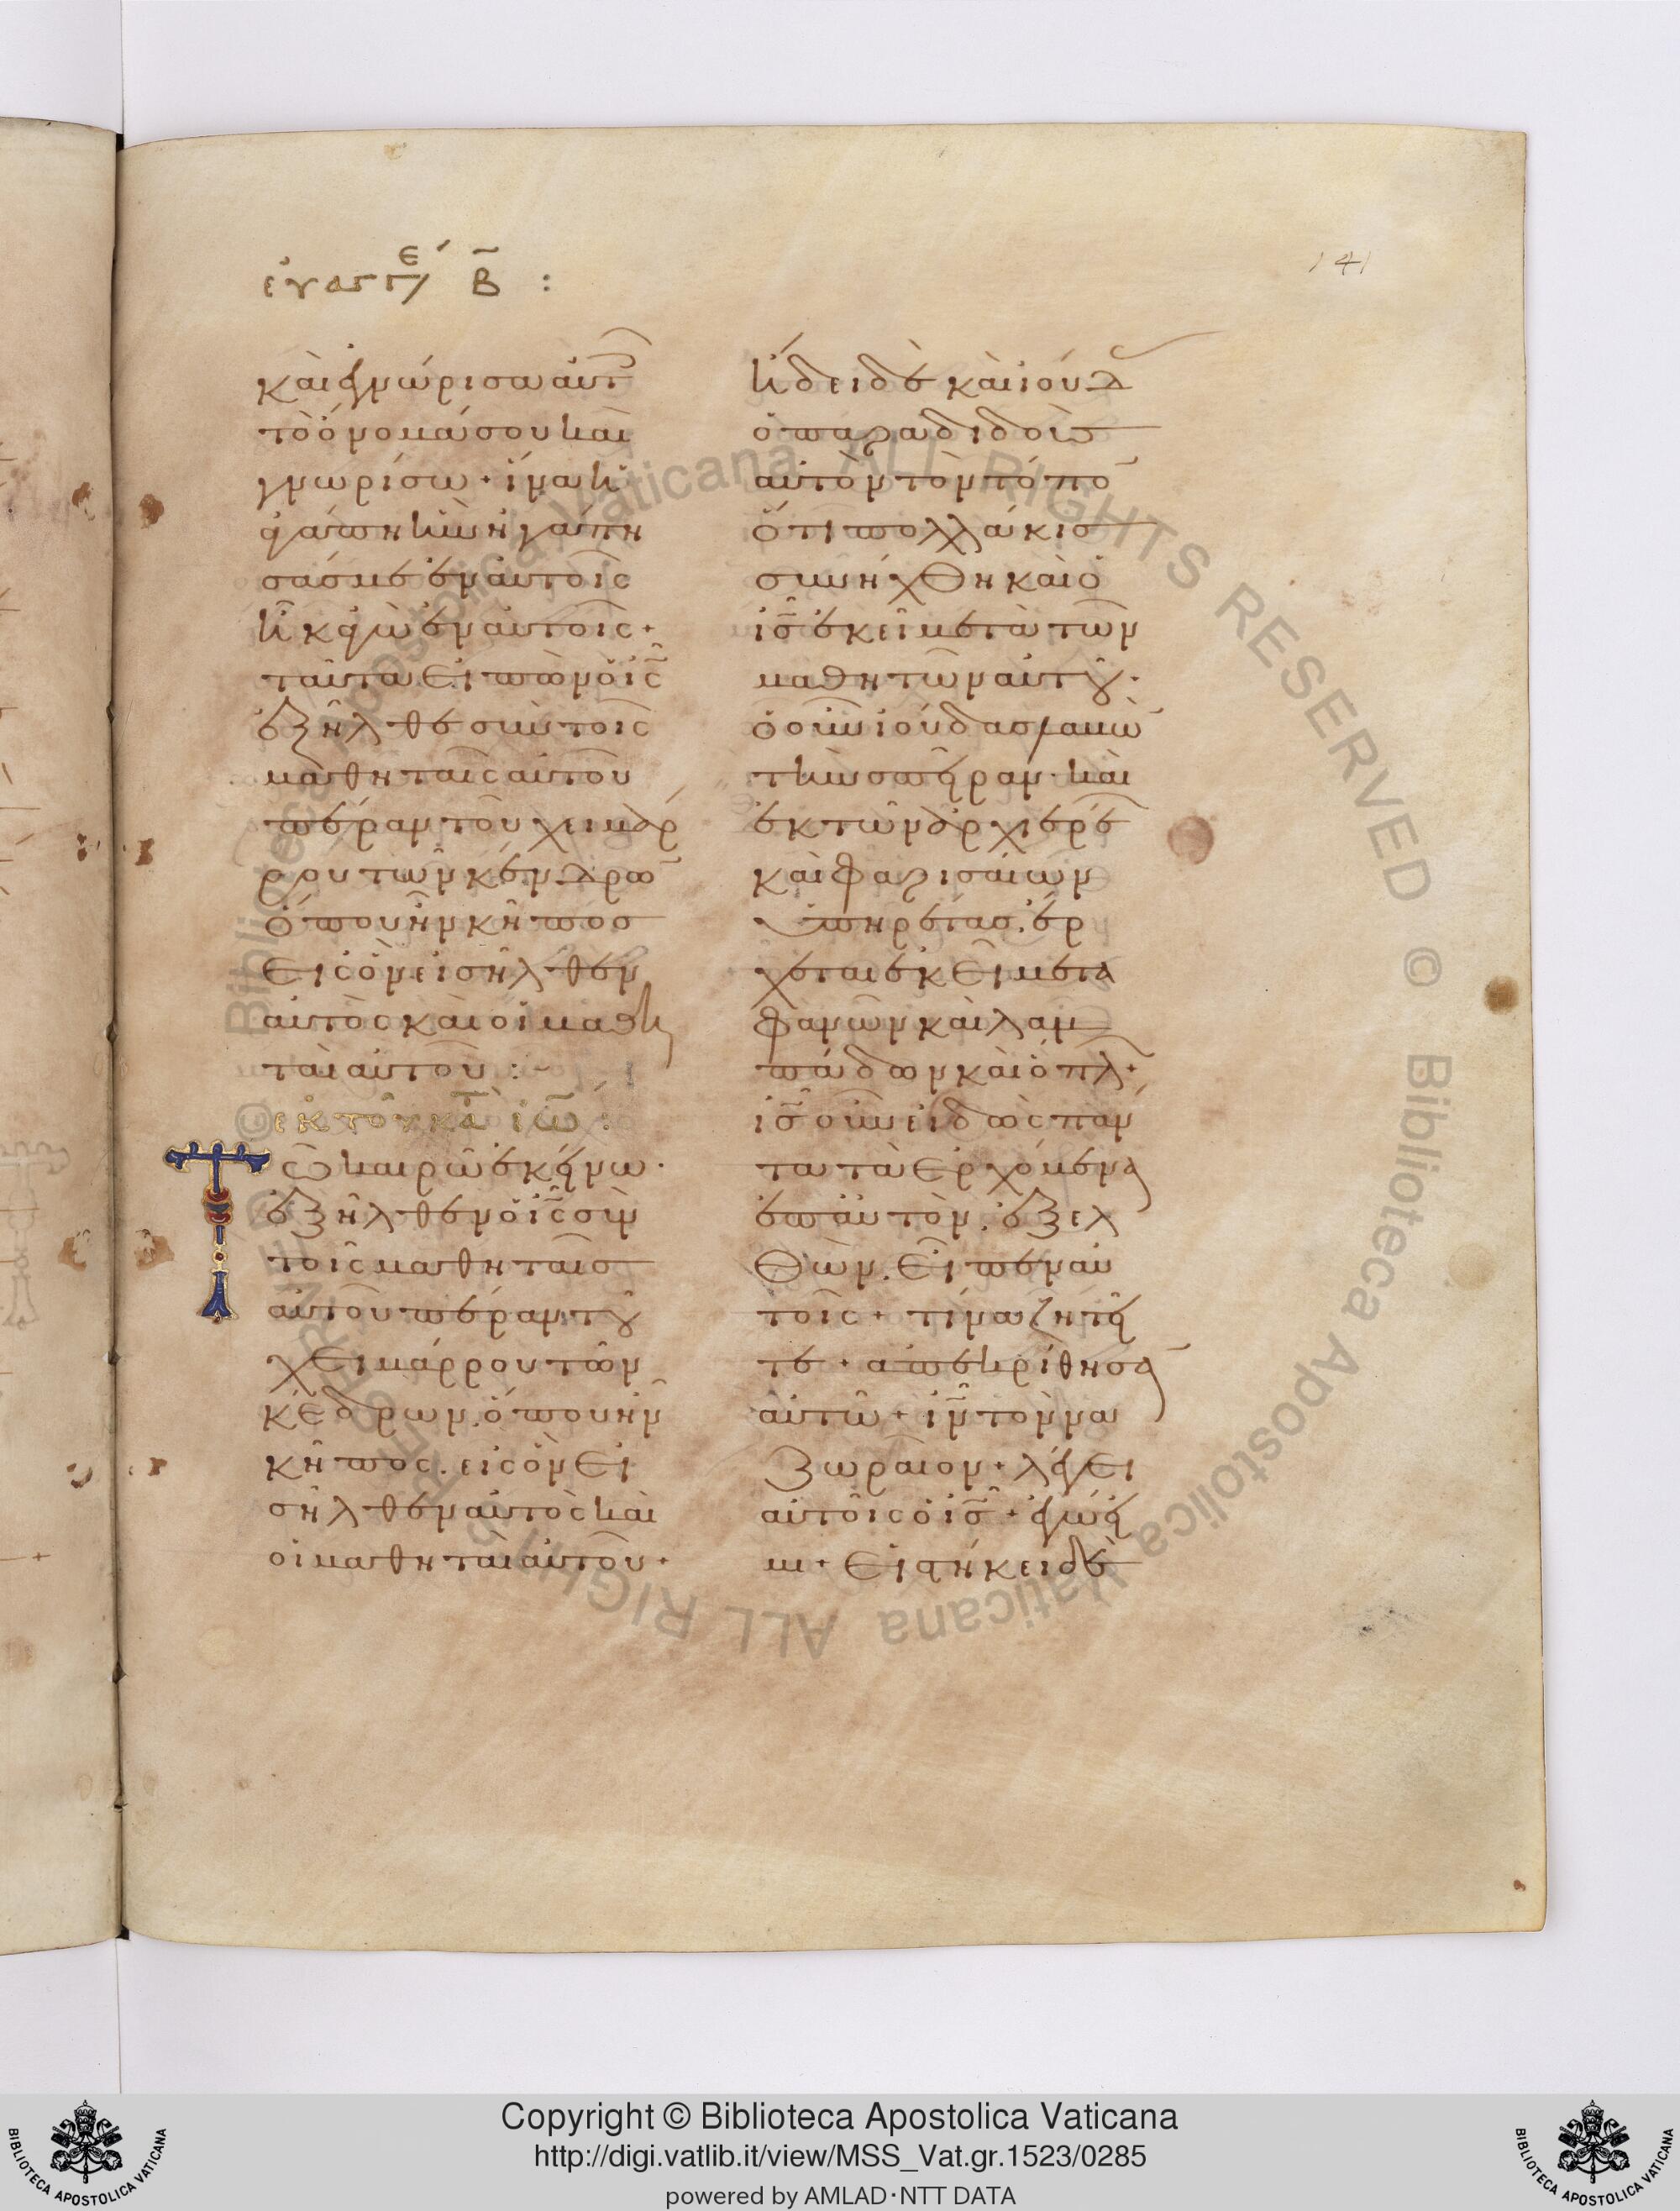 εὐαγγε´ Β̄ :
141
καὶ ἐγνώρισα αὐτ
τὸ ὄνομά σου καὶ
γνωρίσω + ἵνα ἡ
ἀγάπη ἣν ἠγάπη
σάς με ἐν αὐτοῖς
ἦ κἀγὼ ἐν αὐτοῖς +
ταῦτα εἰπὼν ὁ ις
ἐξῆλθε σὺν τοῖς
μαθηταῖς αὐτοῦ
πέραν τοῦ χειμάρ
ρου τῶν κένδρω
ὅπου ἦν κῆπος
εἰς ὃν εἰσῆλθεν
αὐτὸς καὶ οἱ μαθη
ταὶ αὐτοῦ : ~
ἐκ τοῦ κατὰ ἰω :
Τῶ καιρῶ ἐκείνω ·
ἐξῆλθεν ὁ ις σὺν
τοῖς μαθηταῖς
αὐτοῦ πέραν τοῦ
χειμάρρου τῶν
κέδρων. ὅπου ἦν
κῆπος. εἰς ὃν εἰ
σῆλθεν αὐτὸς καὶ
οἱ μαθηταὶ αὐτοῦ +
ἤδει δὲ καὶ ἰούδ
ὁ παραδιδοὺς
αὐτὸν τὸν τόπο
ὅτι πολλάκις
συνήχθη καὶ ὁ
ις ἐκεῖ μετὰ τῶν
μαθητῶν αὐτοῦ ·
ὁ οὖν ἰούδας λαβὼ
τὴν σπεῖραν · καὶ
ἐκ τῶν ἀρχιερέ
καὶ φαρισαίων
ὑπηρέτας. ἔρ
χεται ἐκεῖ μετὰ
φανῶν καὶ λαμ
πάδων καὶ ὅπλ +
ις οὖν εἰδὼς πάν
τα τὰ ἐρχόμενα
ἐπ αὐτὸν. ἐξελ
θὼν. εἶπεν αὐ
τοῖς + τίνα ζητεῖ
τε + ἀπεκρίθησα
αὐτῶ + ιν τὸν να
ζωραῖον + λέγει
αὐτοῖς ὁ ις + ἐγώ εἰ
μι + εἱστήκει δὲ
Copyright © Biblioteca Apostolica Vaticana
http://digi.vatlib.it/view/MSS_Vat.gr.1523/0285
powered by AMLAD·NTT DATA
BIBLIOTECA APOSTOLICA VATICANA
BIBLIOTECA APOSTOLICA VATICANA
© Biblioteca Apostolica Vaticana ALL RIGHTS RESERVED © Biblioteca Apostolica Vaticana ALL RIGHTS RESERVED